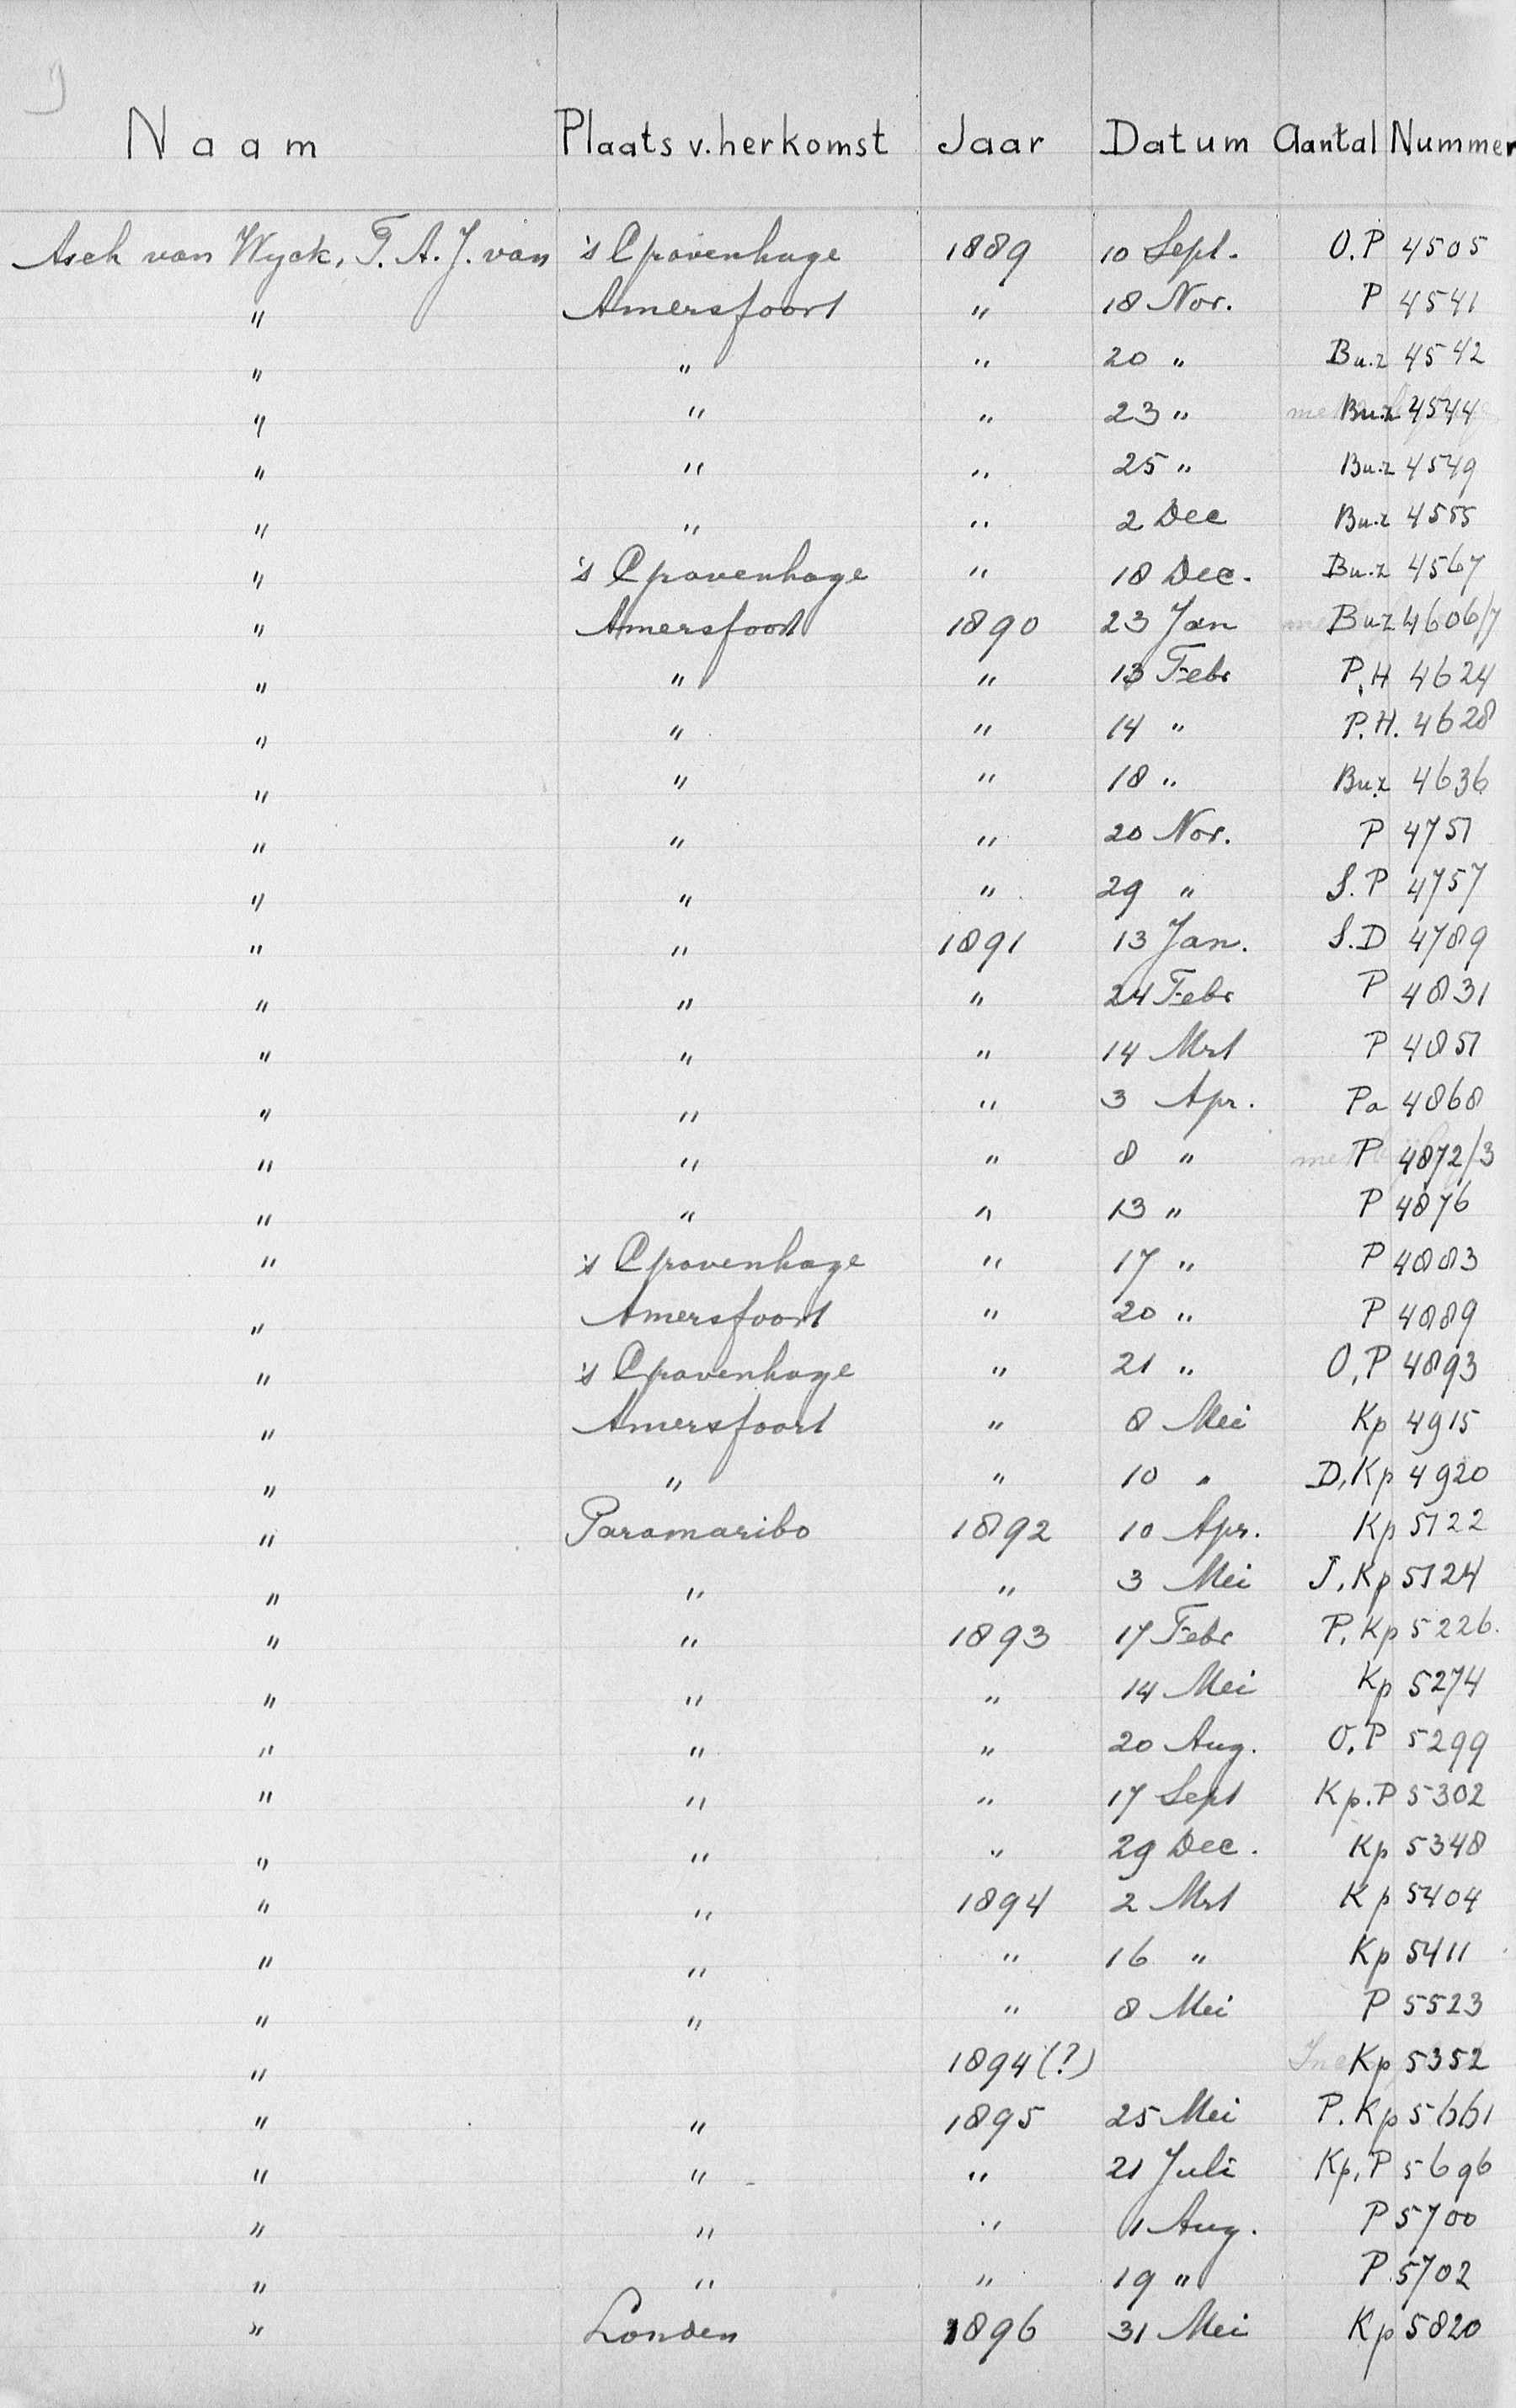 Naam Plaats v. herkomst Jaar Datum Aantal Nummer
Asch van Wyck, T. A. J. van 's Gravenhage 1889 10 Sept. O.P 4505
" Amersfoort " 18 Nov. P 4541
" " " 20 " Bu.z 4542
" " " 23 " Bu.z 4544
" " " 25 " Bu.z 4549
" " " 2 Dec Bu.z 4555
" 's Gravenhage " 18 Dec. Bu.z 4567
" Amersfoort 1890 23 Jan Bu.z 4606/7
" " " 13 Febr P.H 4624
" " " 14 " P.H. 4628
" " " 18 " Bu.z 4636
" " " 20 Nov. P 4751
" " " 29 " S.P 4757
" " 1891 13 Jan. S.D 4789
" " " 24 Febr P 4831
" " " 14 Mrt P 4851
" " " 3 Apr. Pa 4868
" " " 8 " P 4872/3
" " " 13 " P 4876
" 's Gravenhage " 17 " P 4883
" Amersfoort " 20 " P 4889
" 's Gravenhage " 21 " O,P 4893
" Amersfoort " 8 Mei Kp 4915
" " " 10 " D,Kp 4920
" Paramaribo 1892 10 Apr. Kp 5122
" " " 3 Mei J,Kp 5124
" " 1893 17 Febr P,Kp 5226.
" " " 14 Mei Kp 5274
" " " 20 Aug. O.P 5299
" " " 17 Sept Kp.P 5302
" " " 29 Dec. Kp 5348
" " 1894 2 Mrt Kp 5404
" " " 16 " Kp 5411
" " " 8 Mei P 5523
" 1894(?) Kp 5352
" " 1895 25 Mei P.Kp 5661
" " " 21 Juli Kp,P 5696
" " " 1 Aug. P 5700
" " " 19 " P 5702
" Londen 1896 31 Mei Kp 5820